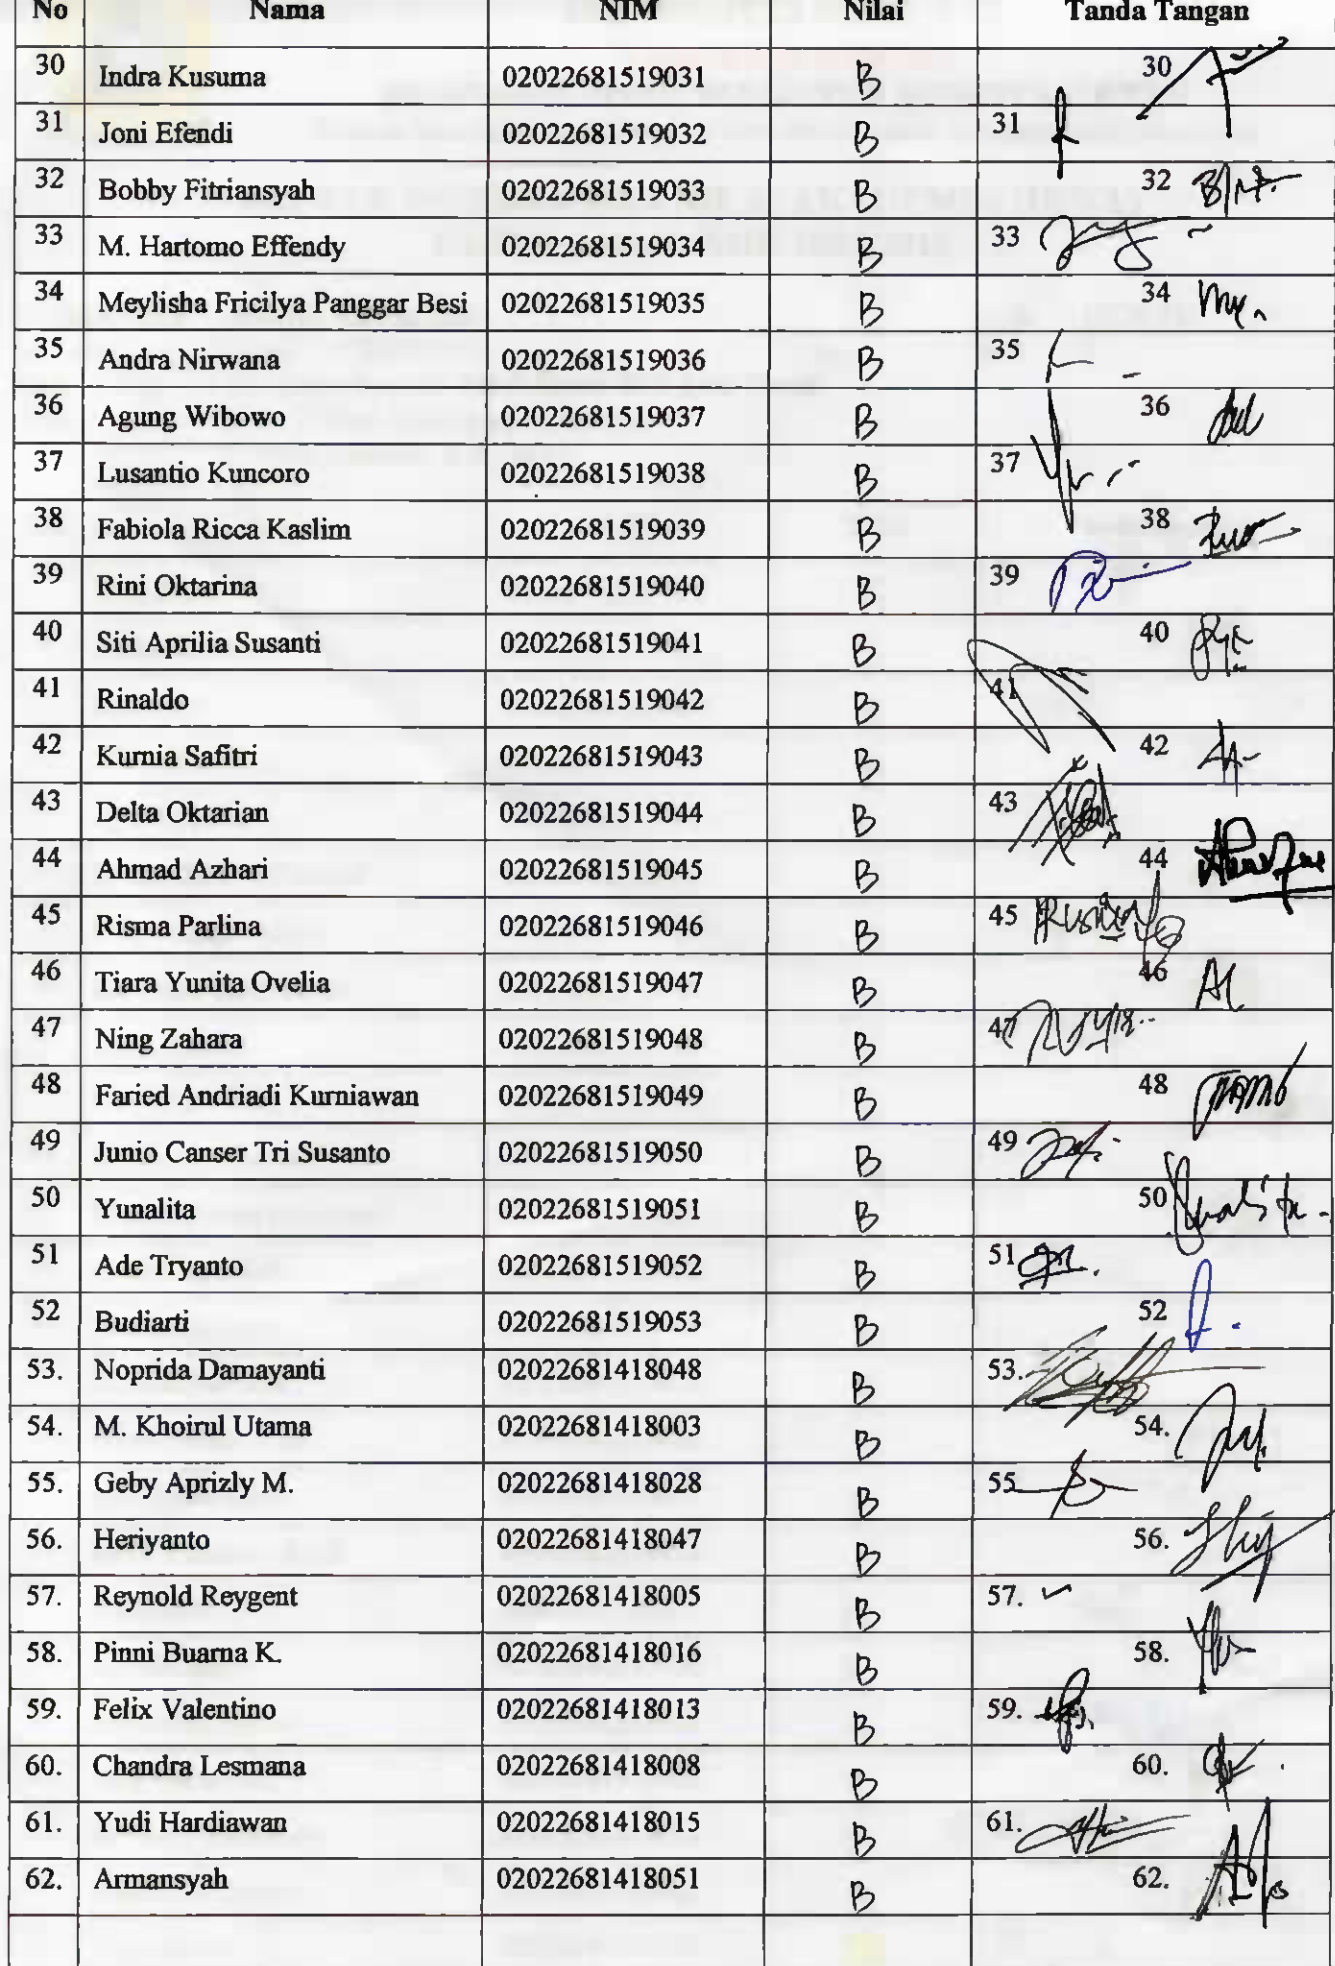 No Nama NIM Nilai Tanda Tangan
30 Indra Kusuma 02022681519031 B 30
31 Joni Efendi 02022681519032 B 31
32 Bobby Fitriansyah 02022681519033 B 32
33 M. Hartomo Effendy 02022681519034 B 33
34 Meylisha Fricilya Panggar Besi 02022681519035 B 34
35 Andra Nirwana 02022681519036 B 35
36 Agung Wibowo 02022681519037 B 36
37 Lusantio Kuncoro 02022681519038 B 37
38 Fabiola Ricca Kaslim 02022681519039 B 38
39 Rini Oktarina 02022681519040 B 39
40 Siti Aprilia Susanti 02022681519041 B 40
41 Rinaldo 02022681519042 B 41
42 Kurnia Safitri 02022681519043 B 42
43 Delta Oktarian 02022681519044 B 43
44 Ahmad Azhari 02022681519045 B 44
45 Risma Parlina 02022681519046 B 45
46 Tiara Yunita Ovelia 02022681519047 B 46
47 Ning Zahara 02022681519048 B 47
48 Faried Andriadi Kurniawan 02022681519049 B 48
49 Junio Canser Tri Susanto 02022681519050 B 49
50 Yunalita 02022681519051 B 50
51 Ade Tryanto 02022681519052 B 51
52 Budiarti 02022681519053 B 52
53. Noprida Damayanti 02022681418048 B 53.
54. M. Khoirul Utama 02022681418003 B 54.
55. Geby Aprizly M. 02022681418028 B 55
56. Heriyanto 02022681418047 B 56.
57. Reynold Reygent 02022681418005 B 57.
58. Pinni Buarna K. 02022681418016 B 58.
59. Felix Valentino 02022681418013 B 59.
60. Chandra Lesmana 02022681418008 B 60.
61. Yudi Hardiawan 02022681418015 B 61.
62. Armansyah 02022681418051 B 62.